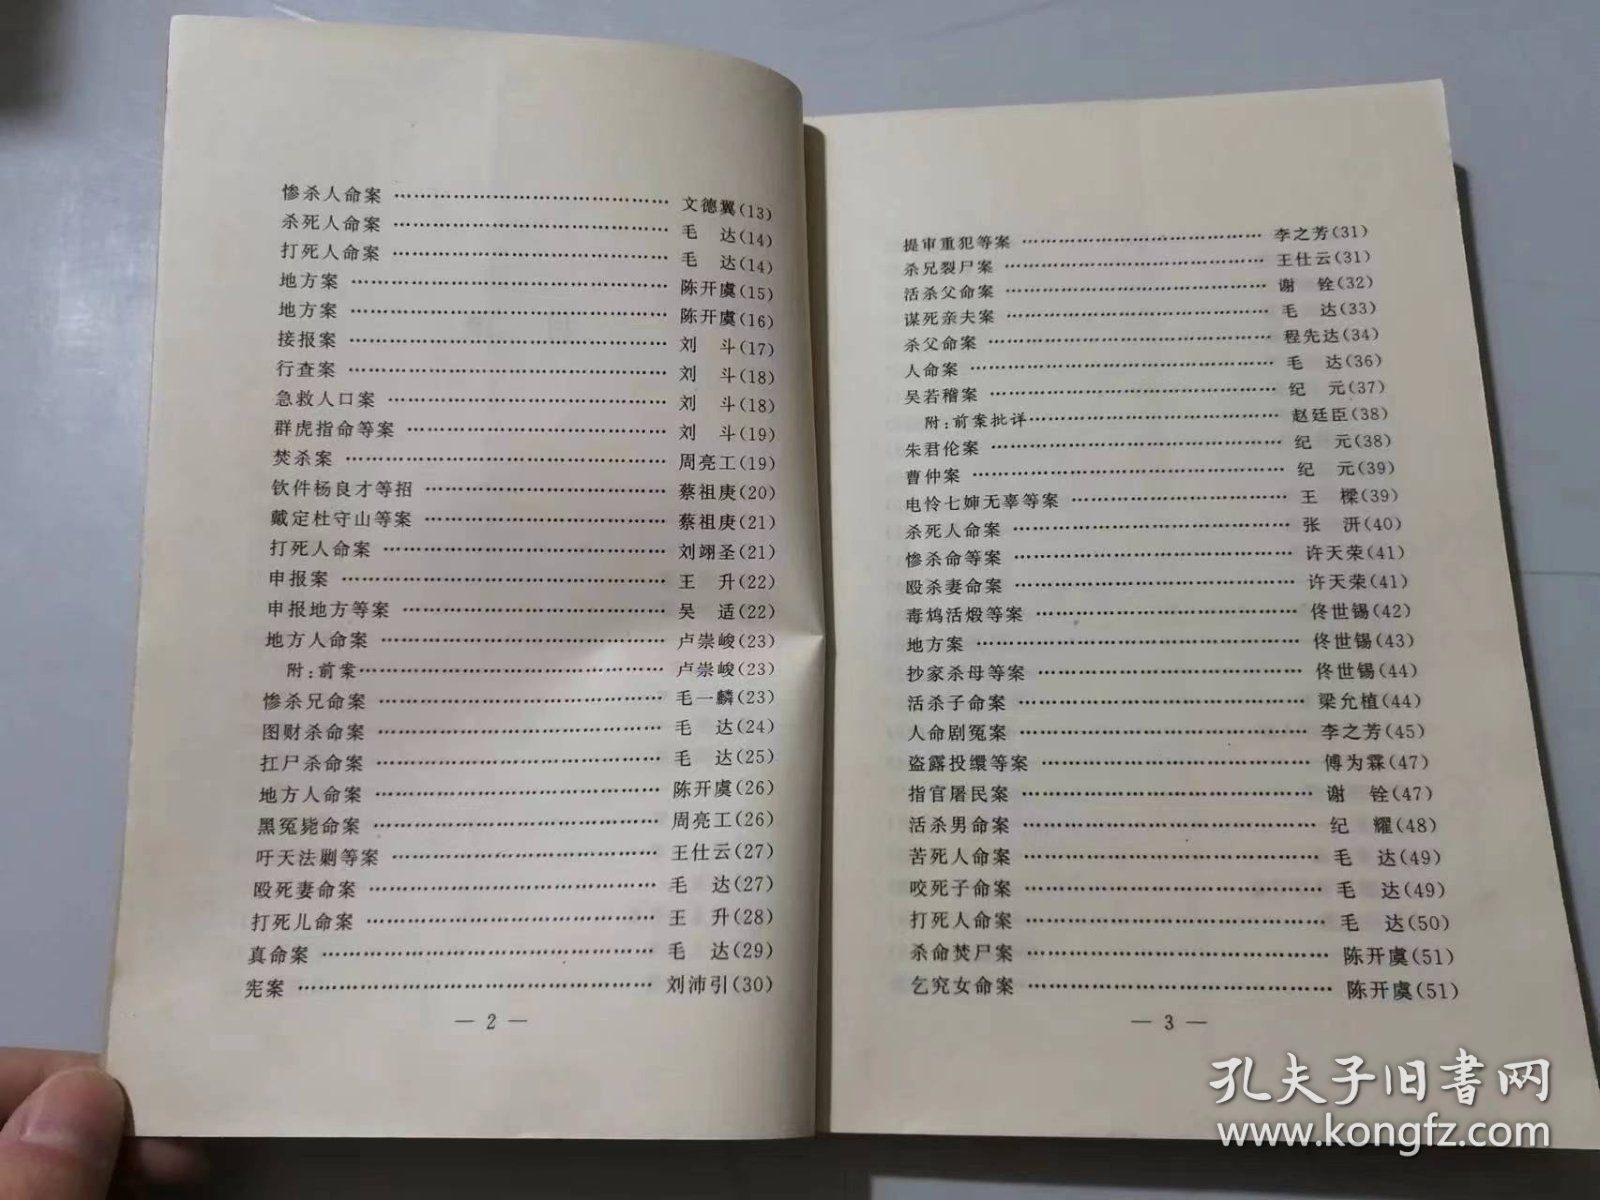 惨杀人命案 …… 文德翼(13)
杀死人命案 …… 毛 达(14)
打死人命案 …… 毛 达(14)
地方案 …… 陈开虞(15)
地方案 …… 陈开虞(16)
接报案 …… 刘 斗(17)
行查案 …… 刘 斗(18)
急救人口案 …… 刘 斗(18)
群虎指命等案 …… 刘 斗(19)
焚杀案 …… 周亮工(19)
钦件杨良才等招 …… 蔡祖庚(20)
戴定杜守山等案 …… 蔡祖庚(21)
打死人命案 …… 刘翊圣(21)
申报案 …… 王 升(22)
申报地方等案 …… 吴 适(22)
地方人命案 …… 卢崇峻(23)
附:前案 …… 卢崇峻(23)
惨杀兄命案 …… 毛一麟(23)
图财杀命案 …… 毛 达(24)
扛尸杀命案 …… 毛 达(25)
地方人命案 …… 陈开虞(26)
黑冤毙命案 …… 周亮工(26)
吁天法剿等案 …… 王仕云(27)
殴死妻命案 …… 毛 达(27)
打死儿命案 …… 王 升(28)
真命案 …… 毛 达(29)
宪案 …… 刘沛引(30)
— 2 —
提审重犯等案 …… 李之芳(31)
杀兄裂尸案 …… 王仕云(31)
活杀父命案 …… 谢 铨(32)
谋死亲夫案 …… 毛 达(33)
杀父命案 …… 程先达(34)
人命案 …… 毛 达(36)
吴若稽案 …… 纪 元(37)
附:前案批详 …… 赵廷臣(38)
朱君伦案 …… 纪 元(38)
曹仲案 …… 纪 元(39)
电怜七婶无辜等案 …… 王 樑(39)
杀死人命案 …… 张 汧(40)
惨杀命等案 …… 许天荣(41)
殴杀妻命案 …… 许天荣(41)
毒鸩活煅等案 …… 佟世锡(42)
地方案 …… 佟世锡(43)
抄家杀母等案 …… 佟世锡(44)
活杀子命案 …… 梁允植(44)
人命剧冤案 …… 李之芳(45)
盗露投缳等案 …… 傅为霖(47)
指官屠民案 …… 谢 铨(47)
活杀男命案 …… 纪 耀(48)
苦死人命案 …… 毛 达(49)
咬死子命案 …… 毛 达(49)
打死人命案 …… 毛 达(50)
杀命焚尸案 …… 陈开虞(51)
乞究女命案 …… 陈开虞(51)
— 3 —
孔夫子旧书网
www.kongfz.com